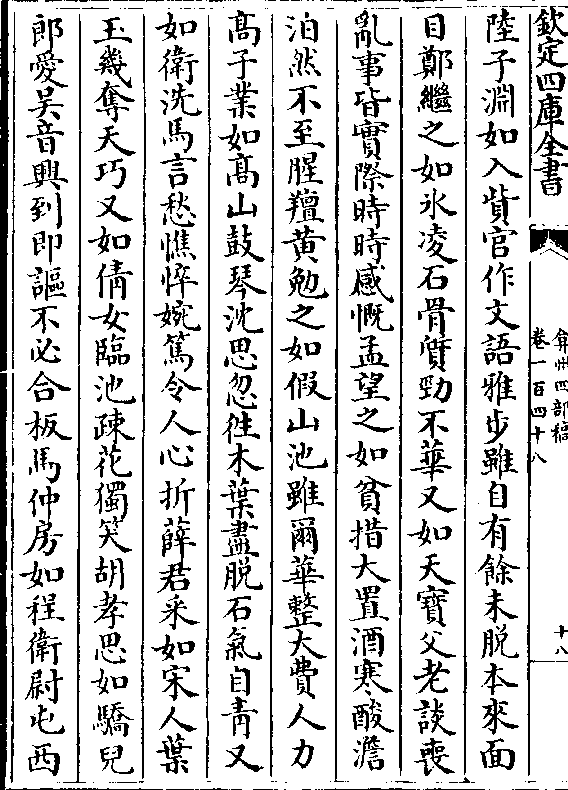 欽定四庫全書
弇州四部稿
卷一百四十八
十八
陸子淵如入貲官作文語雅步雖自有餘未脫本來面
目鄭繼之如氷凌石骨質勁不華又如天寶父老談喪
亂事皆實際時時感慨孟望之如貧措大置酒寒酸澹
泊然不至腥羶黄勉之如假山池雖爾華整大費人力
髙子業如髙山鼓琴沈思忽徃木葉盡脫石氣自青又
如衛洗馬言愁憔悴婉篤令人心折薛君采如宋人葉
玉幾奪天巧又如倩女臨池疎花獨笑胡孝思如驕兒
郎愛吴音興到即謳不必合板馬仲房如程衛尉屯西